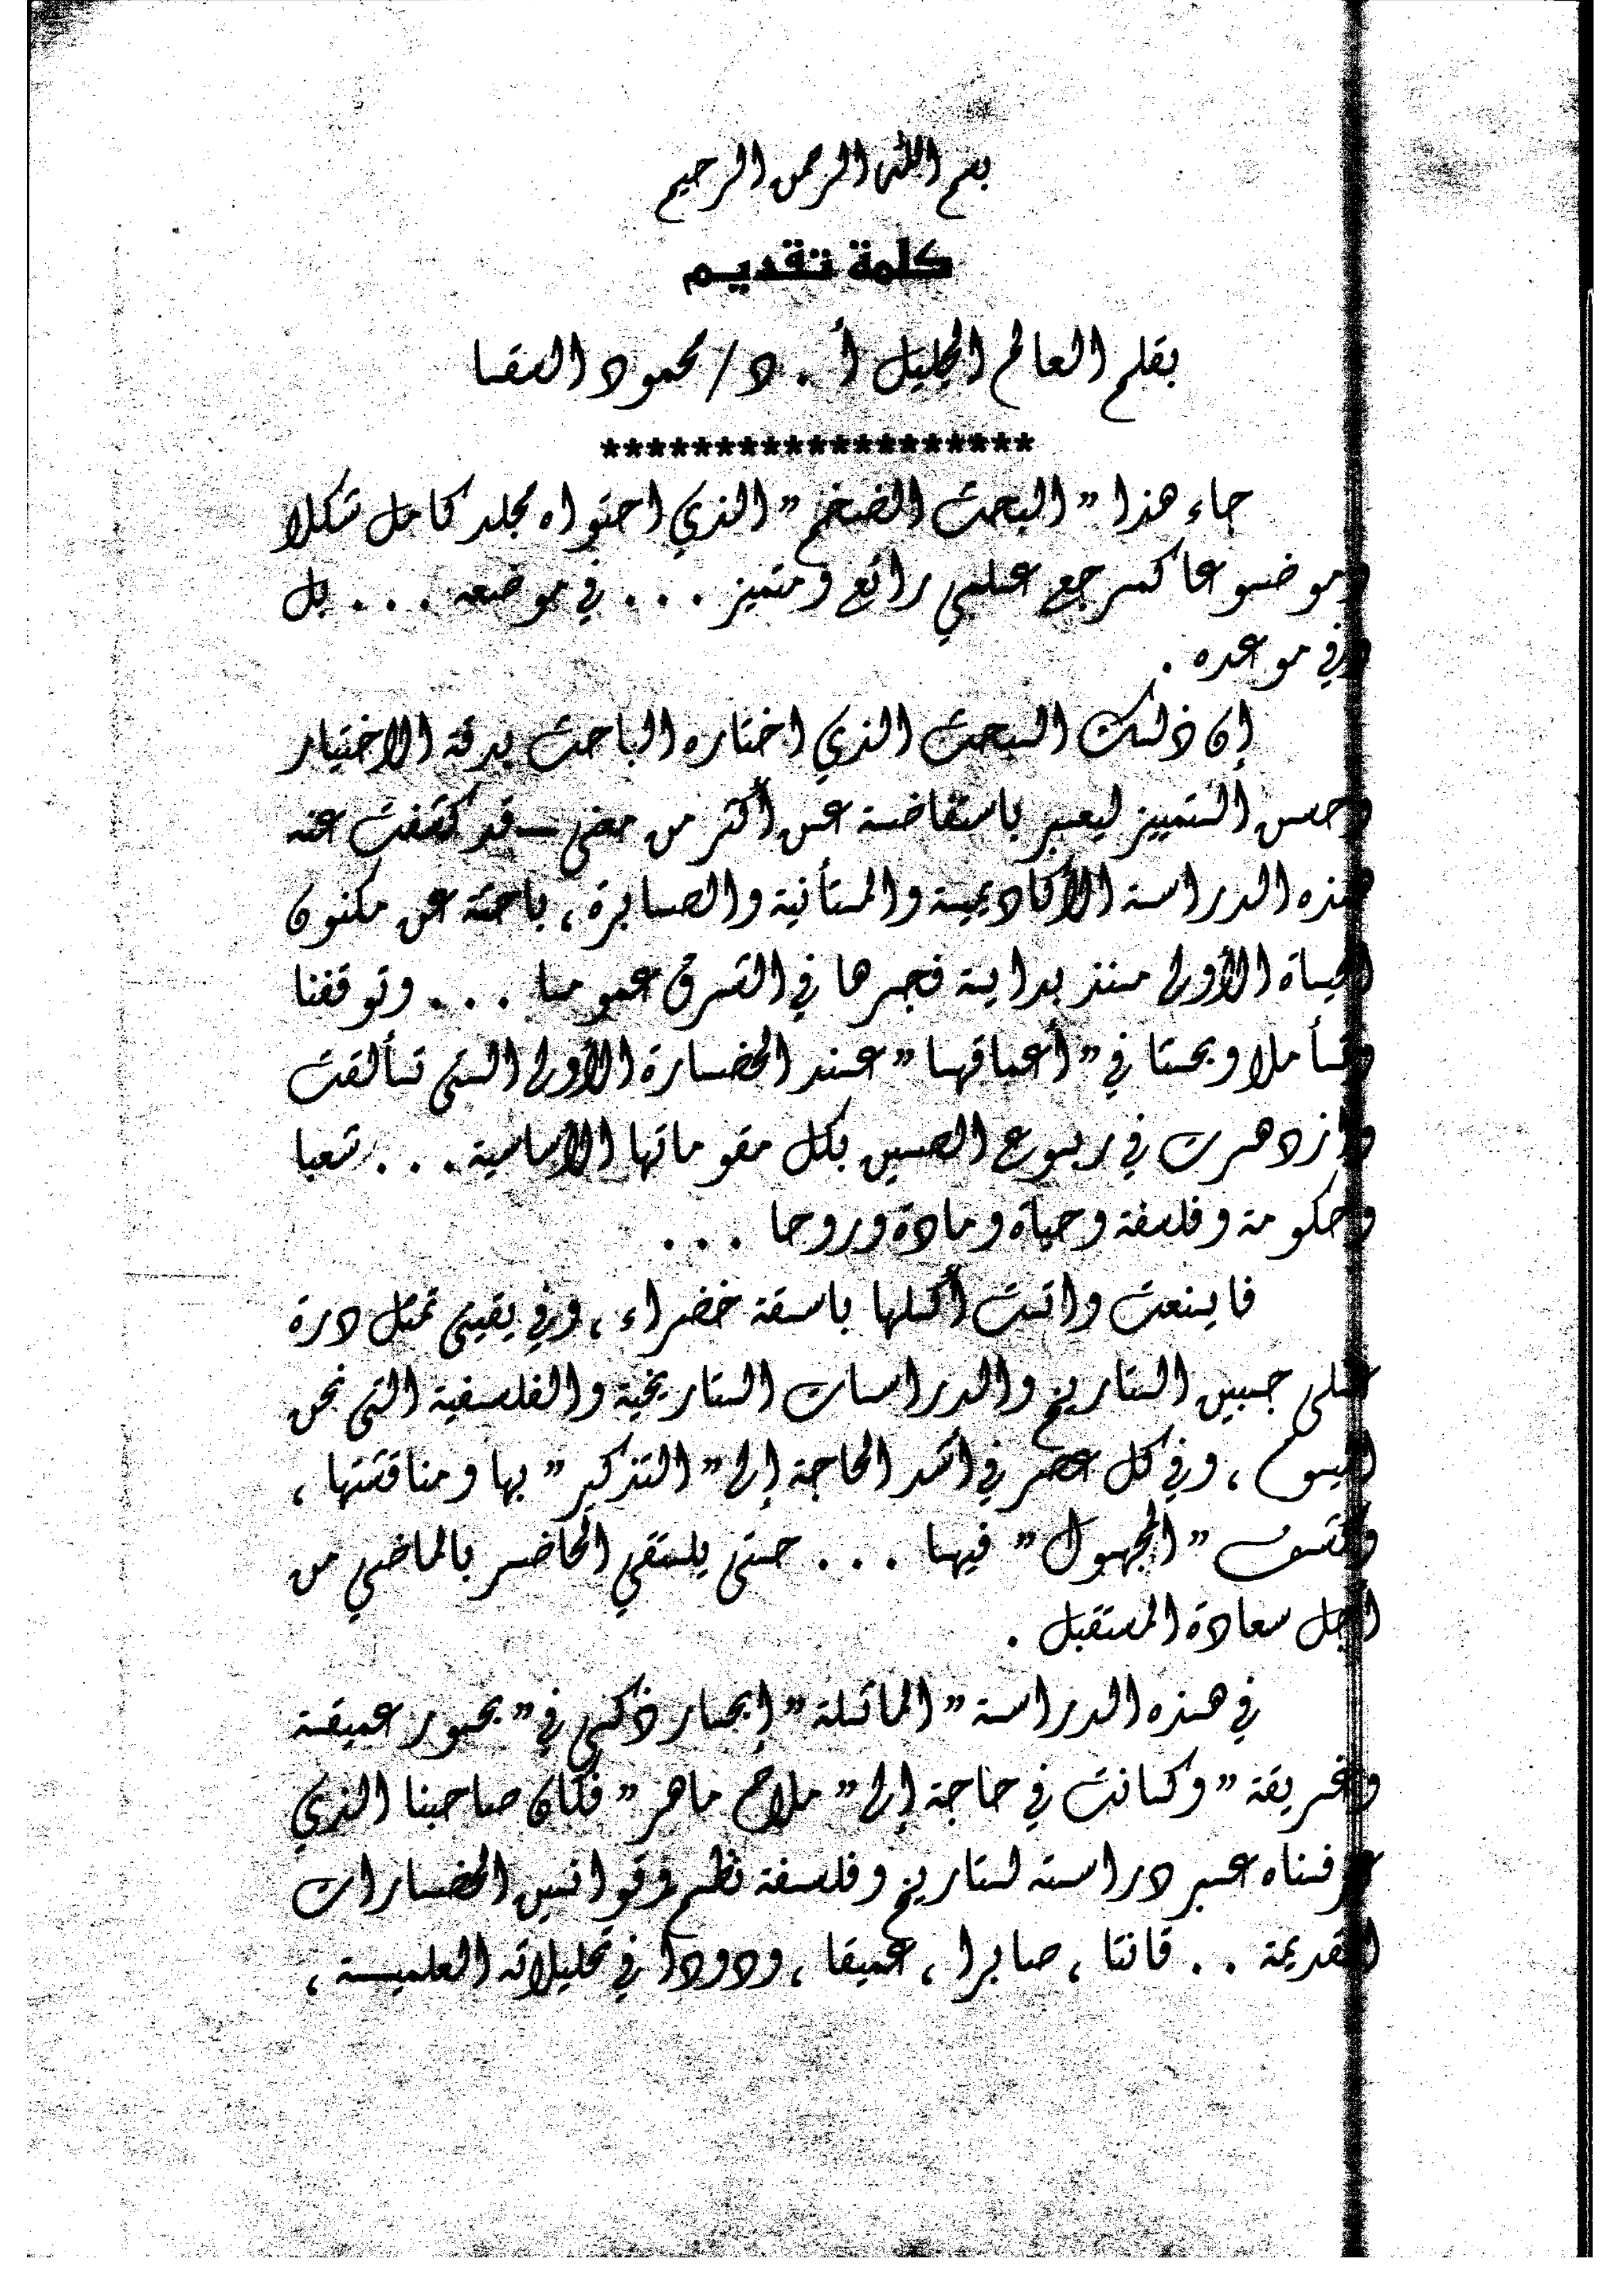 بسم الله الرحمن الرحيم
كلمة تقديم
بقلم العالم الجليل أ . د / محمود السقا
*******************
جاء هذا " البحث الضخم " الذي احتواه مجلد كامل شكلا
وموضوعا كمرجع علمي رائع ومتميز . . . في موضعه . . . بل
وفي موعده .
إن ذلك البحث الذي اختاره الباحث بدقة الاختيار
وحسن التمييز ليعبر باستفاضة عن أكثر من معنى ــ قد كشفت عنه
هذه الدراسة الأكاديمية والمتأنية والصابرة ، باحثة عن مكنون
الحياة الأولى منذ بداية فجرها في الشرق عموما . . . وتوقفنا
وتأملا وبحثا في " أعماقها " عند الحضارة الأولى التى تألقت
وازدهرت في ربوع الصين بكل مقوماتها الأساسية . . . شعبا
وحكومة وفلسفة وحياة ومادة وروحا . . .
فاينعت واتت أكلها باسقة خضراء ، وفي يقينى تمثل درة
على جبين التاريخ والدراسات التاريخية والفلسفية التى نحن
اليوم ، وفي كل عصر في أشد الحاجة إلى " التذكير " بها ومناقشتها ،
وكشف " المجهول " فيها . . . حتى يلتقي الحاضر بالماضي من
اجل سعادة المستقبل .
في هذه الدراسة " الماثلة " إبحار ذكى في " بحور عميقة
وغريقة " وكانت في حاجة إلى " ملاح ماهر " فكان صاحبنا الذي
عرفناه عبر دراسته لتاريخ وفلسفة نظم وقوانين الحضارات
القديمة . . قانتا ، صابرا ، عميقا ، ودودا في تحليلاته العلمية ،